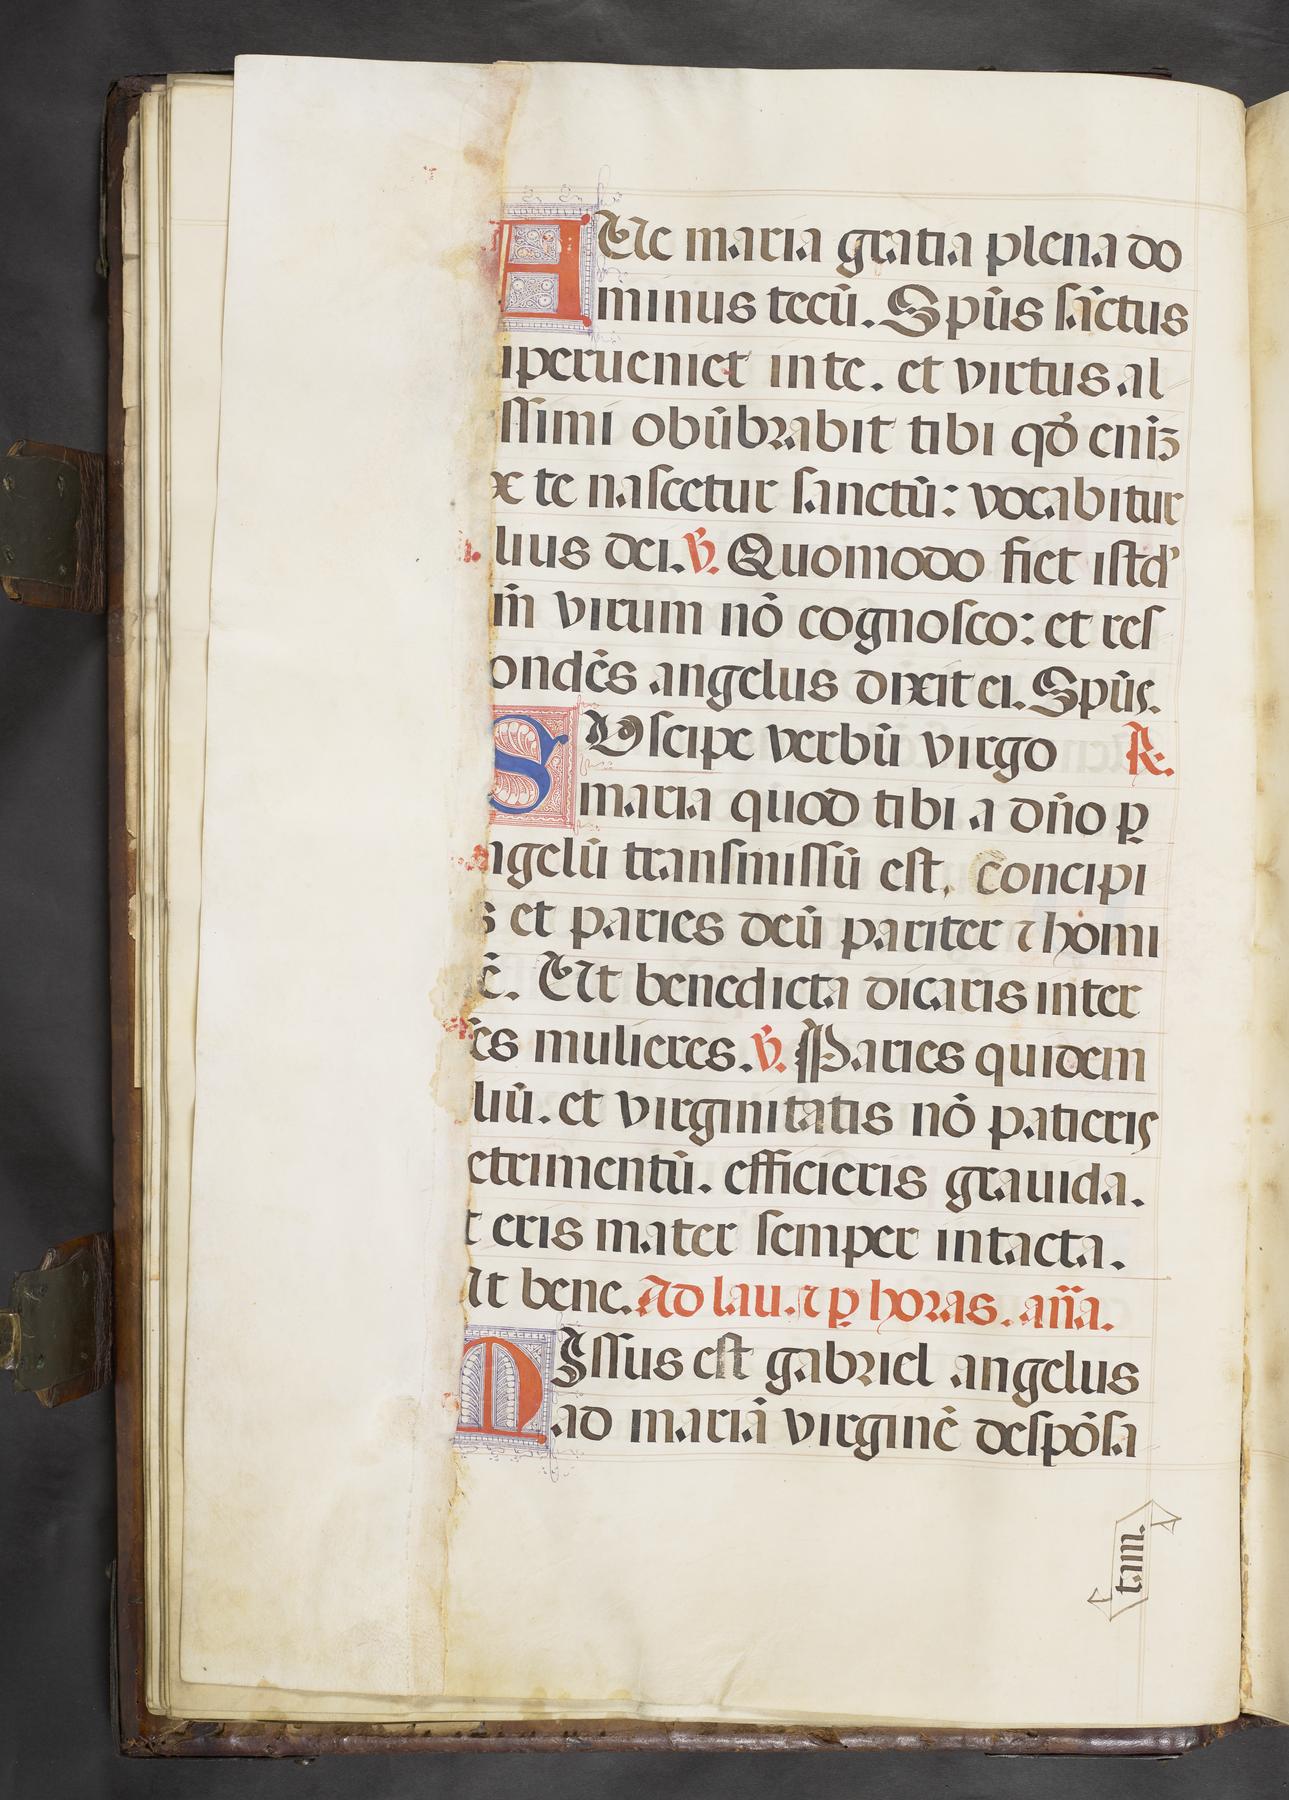 AUe maria gratia plena do
minus tecū. Spūs sāctus
uperueniet in te. et virtus al
ssimi obūbrabit tibi qđ enīʒ
x te nascetur sanctū: vocabitur
lius dei. ℣. Quomodo fiet istđ
m̄ virum nō cognosco: et res
ondēs angelus dixit ei. Spūs.
SUscipe verbū virgo ℟.
maria quod tibi a dño ꝑ
ngelū transmissū est. concipi
s et paries deū pariter ⁊ homi
ē. Ut benedicta dicaris inter
es mulieres. ℣. Paries quidem
liū. et virginitatis nō patieris
etrimentū. efficieris grauida.
t eris mater semper intacta.
Ut bene. Ad lau. ⁊ ꝑ horas. aña.
MIssus est gabriel angelus
ad mariā virginē despōsa
tam.